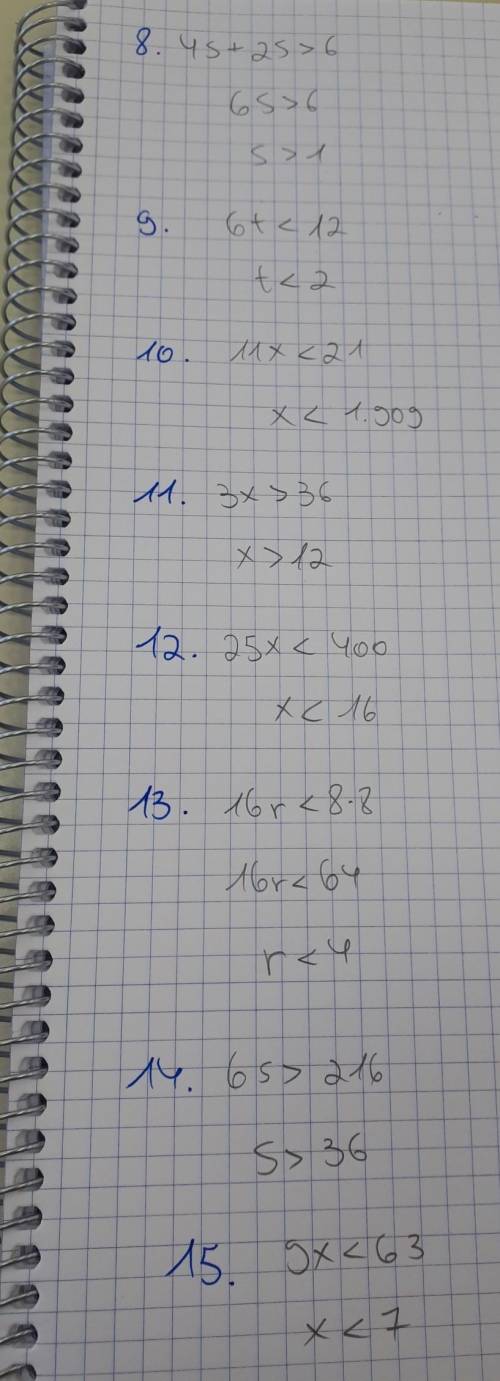 8. 4s+2s>6
6s>6
s>1
9. 6t<12
t<2
10. 11x<21
x<1.909
11. 3x>36
x>12
12. 25x<400
x<16
13. 16r<8·8
16r<64
r<4
14. 6s>216
s>36
15. 9x<63
x<7